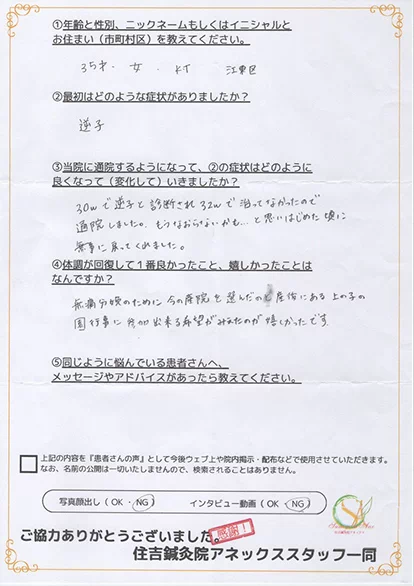 ①年齢と性別、ニックネームもしくはイニシャルと
お住まい（市町村区）を教えてください。
35才・女 KT 江東区
②最初はどのような症状がありましたか？
逆子
③当院に通院するようになって、②の症状はどのように
良くなって（変化して）いきましたか？
30wで逆子と診断され32wで治ってなかったので
通院しました。もうなおらないかも…と思いはじめた頃に
無事に戻ってくれました。
④体調が回復して１番良かったこと、嬉しかったことは
なんですか？
無痛分娩のために今の産院を選んだの 産後にある上の子の
園行事に参加出来る希望がみえたのが嬉しかったです
⑤同じように悩んでいる患者さんへ、
メッセージやアドバイスがあったら教えてください。
上記の内容を『患者さんの声』として今後ウェブ上や院内掲示・配布などで使用させていただきます。
なお、名前の公開は一切いたしませんので、検索されることはありません。
写真顔出し（OK・NG） インタビュー動画（OK・NG）
ご協力ありがとうございました。 感謝！
住吉鍼灸院アネックススタッフ一同